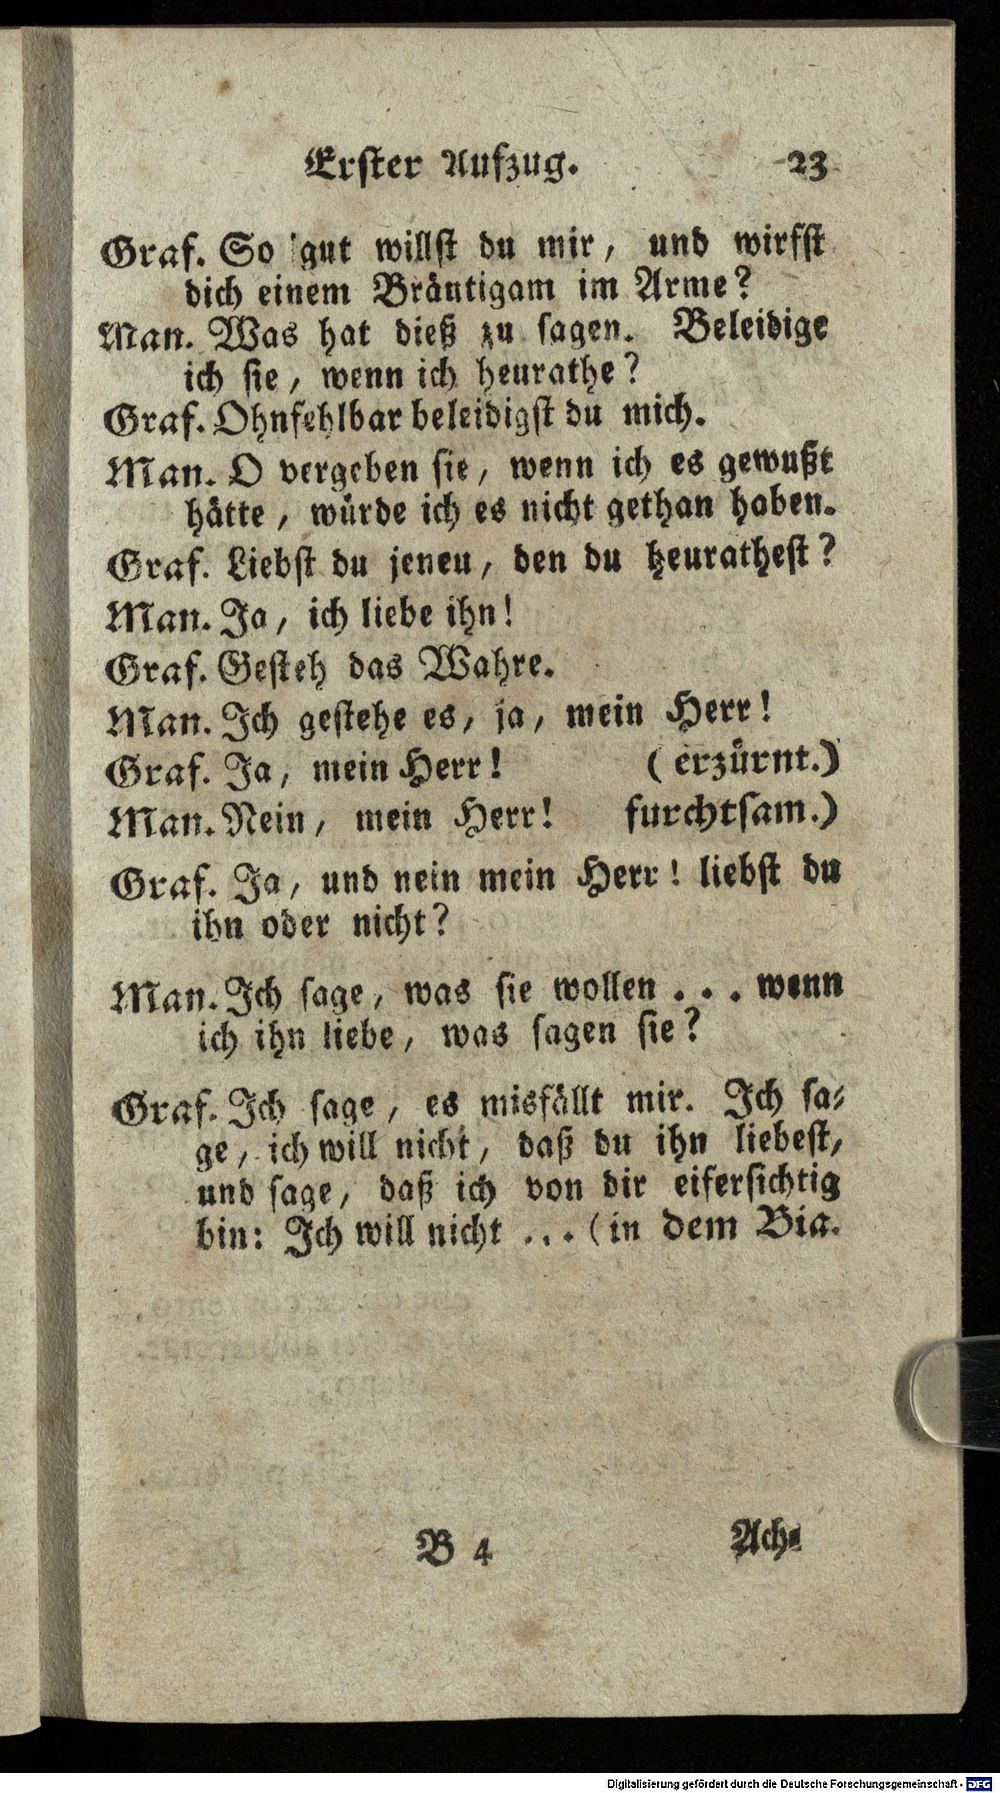 Erster Aufzug. 23
Graf. So gut willst du mir, und wirfst
dich einem Bräutigam im Arme?
Man. Was hat dieß zu sagen. Beleidige
ich sie, wenn ich heurathe?
Graf. Ohnfehlbar beleidigst du mich.
Man. O vergeben sie, wenn ich es gewußt
hätte, würde ich es nicht gethan haben.
Graf. Liebst du jeneu, den du heurathest?
Man. Ja, ich liebe ihn!
Graf. Gesteh das Wahre.
Man. Ich gestehe es, ja, mein Herr!
Graf. Ja, mein Herr! (erzürnt.)
Man. Nein, mein Herr! furchtsam.)
Graf. Ja, und nein mein Herr! liebst du
ihn oder nicht?
Man. Ich sage, was sie wollen . . . wenn
ich ihn liebe, was sagen sie?
Graf. Ich sage, es misfällt mir. Ich sa-
ge, ich will nicht, daß du ihn liebest,
und sage, daß ich von dir eifersichtig
bin: Ich will nicht ... (in dem Bia.
B 4 Ach-
Digitalisierung gefördert durch die Deutsche Forschungsgemeinschaft - DFG